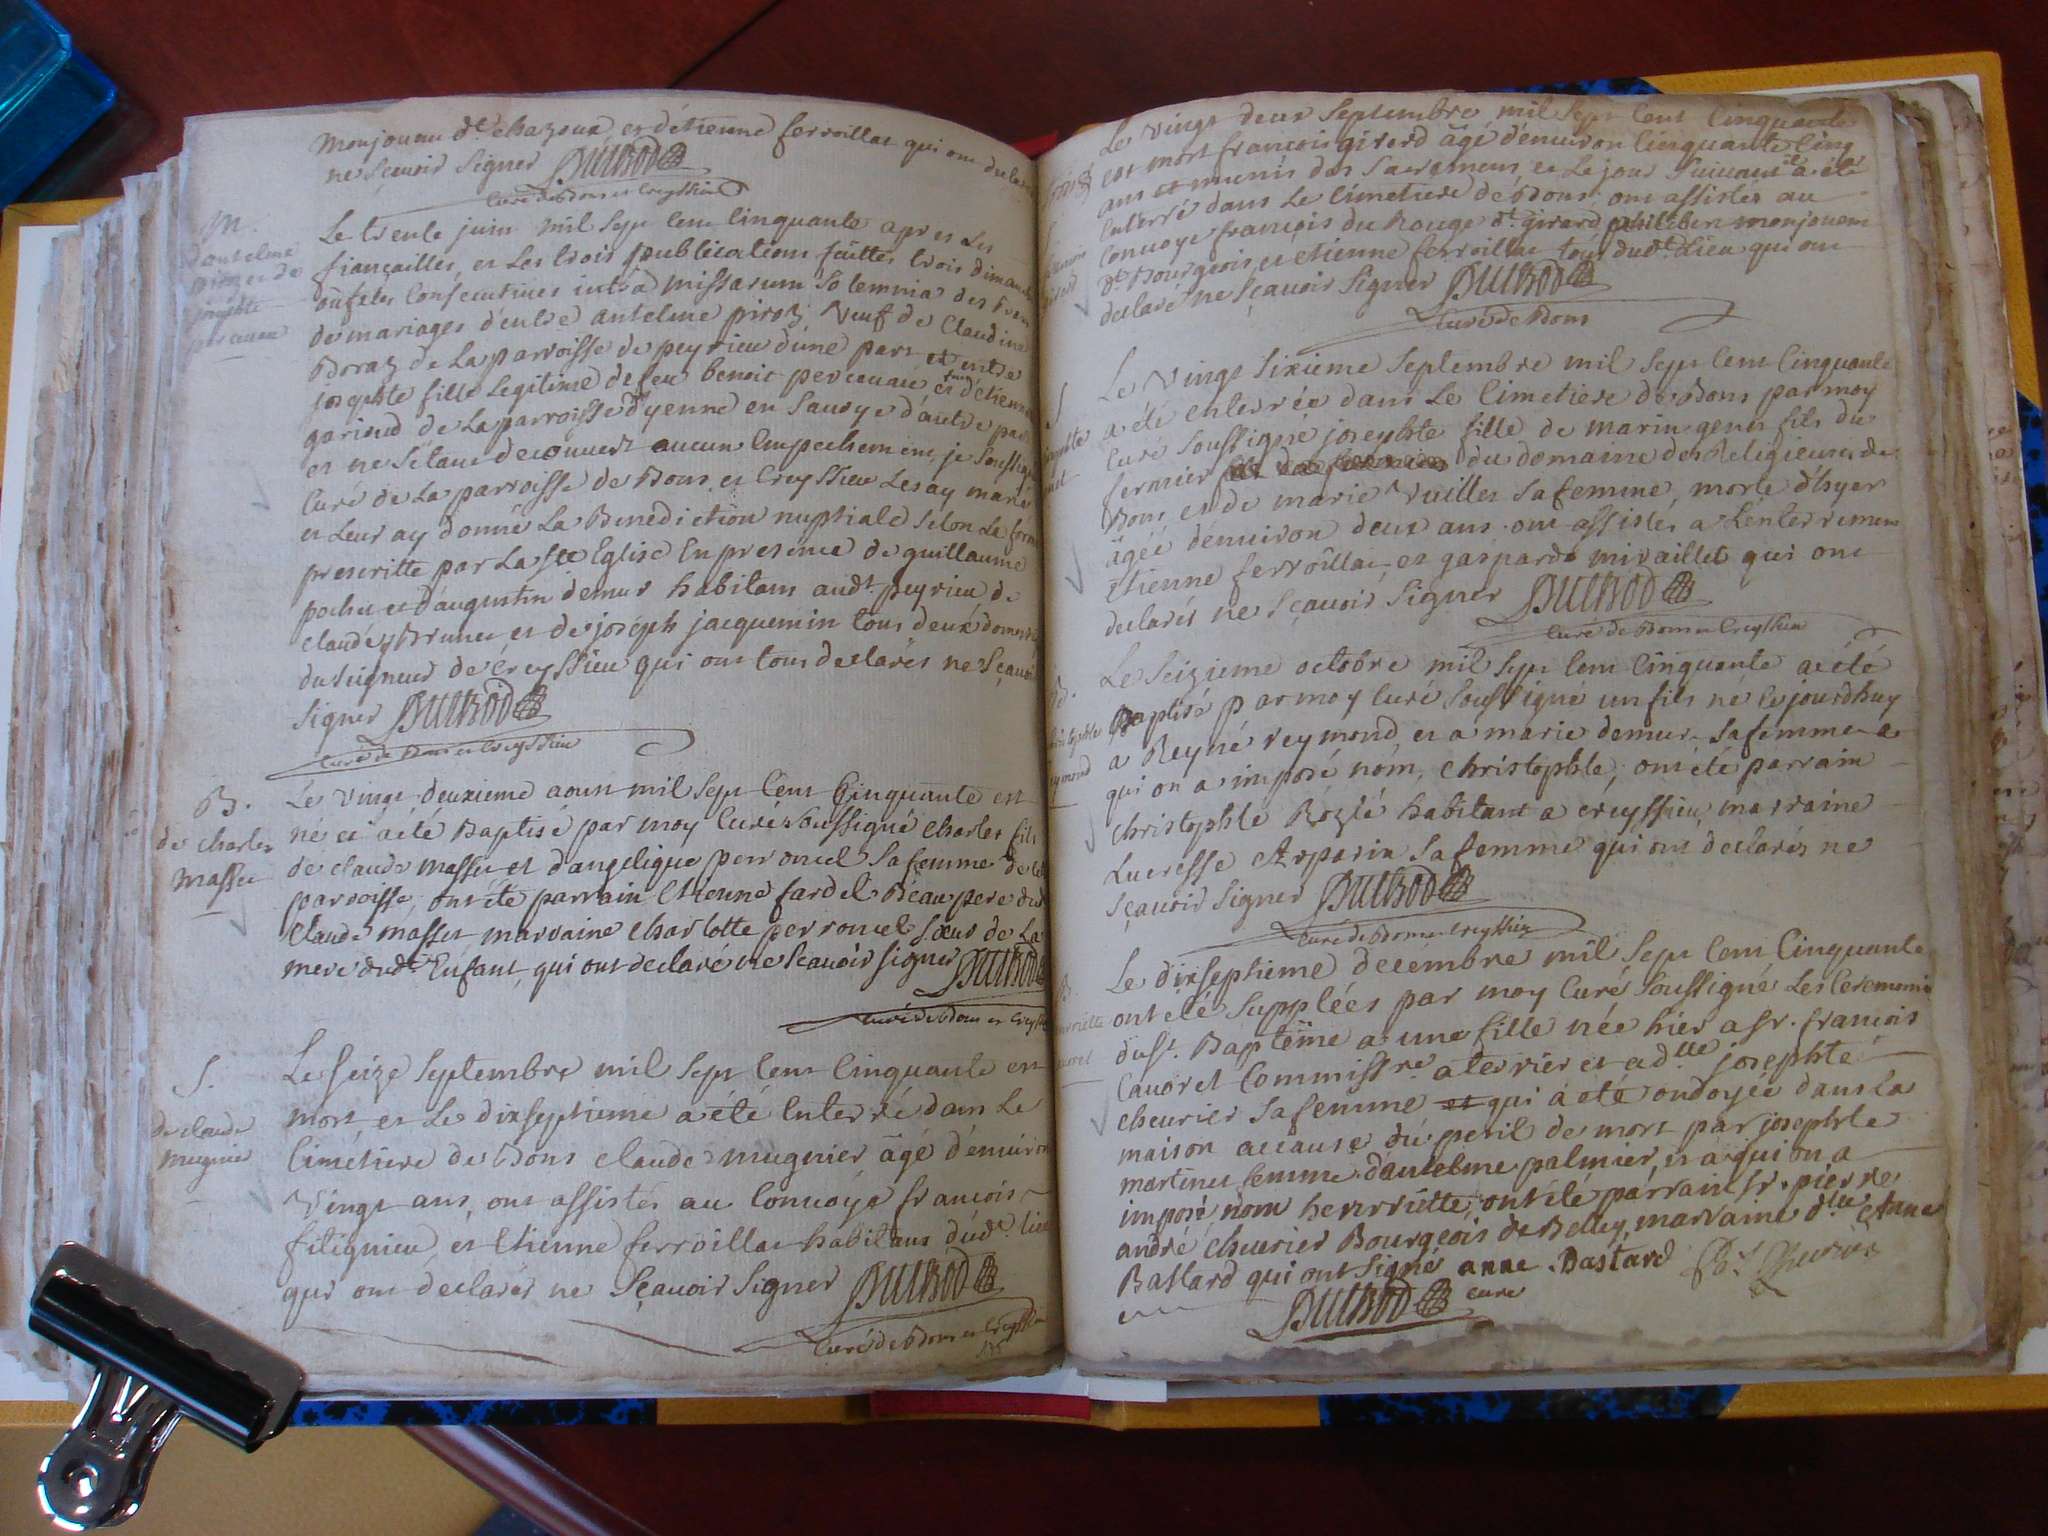 monjouau dt chazoux, et d'étienne ferroillat qui ont declaré
ne sçauoir signer Dutibod
Curé de Bons et Creyssieu
M.
d'antelme
et de
josephte
Le trente juin mil sept cent Cinquante apres Les
fiançailles, et Les trois publications faittes trois dimanches
ou festes Consecutives intra missarum solemnia des
de mariages d'entre antelme piroz veuf de Claudine
Boraz de La parroisse de peyrieu d'une part et entre
josephte fille Legitime de feu benoit percevaux et d'etiennette
garioud de La parroisse d'yenne en Sauoye d'autre part
et ne s'étant decouvert aucun Empechement, je soussigné
Curé de La parroisse de Bons et Creyssieu Les ay mariés
et Leur ay donné La Benediction nuptiale selon La forme
prescritte par La ste Eglise En presence de guillaume
pochet et d'augustin demur habitans audt. peyrieu de
claude Brunet et de joseph jacquemin tous deux domestiques
du seigneur de Creyssieu qui ont tous declarés ne sçauoir
signer Dutibod
Curé de Bons et Creyssieu
B.
de charles
massu
Le vingt deuxieme aoust mil sept Cent Cinquante est
né et a été Baptisé par moy Curé soussigné charles fils
de claude massu et d'angelique perroncel sa femme de cette
parroisse, ont été parrain Etienne fardel Beau pere dudt
Claude massu marraine charlotte perroncel soeur de La
mere dudt. Enfant, qui ont declaré ne sçauoir signer Dutibod
Curé de Bons et Creyssieu
S.
de claude
mugnier
Le seize septembre mil sept Cent Cinquante est
mort et Le dixseptieme a été Enterré dans Le
Cimetiere de Bons claude mugnier âgé d'enuiron
vingt ans, ont assistés au Conuoye francois
fitignieu, et Etienne ferroillat habitans dudt. lieu
qui ont declarés ne sçauoir signer Dutibod
Curé de Bons et Creyssieu
Le vingt deux septembre mil sept Cent Cinquante
est mort francois girerd âgé d'enuiron Cinquante Cinq
ans et munis des Sacremens, et Le jour suivant il a été
Enterré dans Le Cimetiere de Bons, ont assistés au
Conuoye francois du Rouge dt girard philiben monjouau
dt Bourgeois, et etienne ferroillat tous dudt. Lieu qui ont
declaré ne sçauoir signer Dutibod
Curé de Bons
S
josephte
Le vingt sixieme septembre mil sept Cent Cinquante
a été Enterrée dans Le Cimetiere de Bons par moy
Curé soussigné josephte fille de marin genet fils du
fermier du domaine des Religieuses de
Bons et de marie Vuillet sa femme, morte d'hyer
âgée d'enuiron deux ans. ont assistés a L'enterrement
Etienne ferroillat, et gasparde miraillet qui ont
declarés ne sçauoir signer Dutibod
Curé de Bons et Creyssieu
B.
christophle
Reymond
Le seizieme octobre mil sept Cent Cinquante a été
Baptisé par moy Curé soussigné un fils né ce jourdhuy
a Reyné Reymond et a marie demur sa femme a
qui on a imposé nom, christophle, ont été parrain
christophle Rozlé habitant a creyssieu, marraine
Lucresse Arparin sa femme qui ont declarés ne
sçauoir signer Dutibod
Curé de Bons et Creyssieu
B.
henrriette
Cauoret
Le dixseptieme decembre mil sept Cent Cinquante
ont été supplées par moy Curé soussigné Les Ceremonies
du st. Baptême a une fille née hier a sr. francois
Cauoret Commissre. a terrier et a dlle josephte
cheurier sa femme et qui a été ondoyée dans La
maison accause du peril de mort par josephte
martinet femme d'antelme palmier, et a qui on a
imposé nom henrriette, ont été parrain sr. pierre
andré cheurier Bourgeois de Belley, marraine dlle Anne
Bastard qui ont signé anne Bastard
Dutibod curé